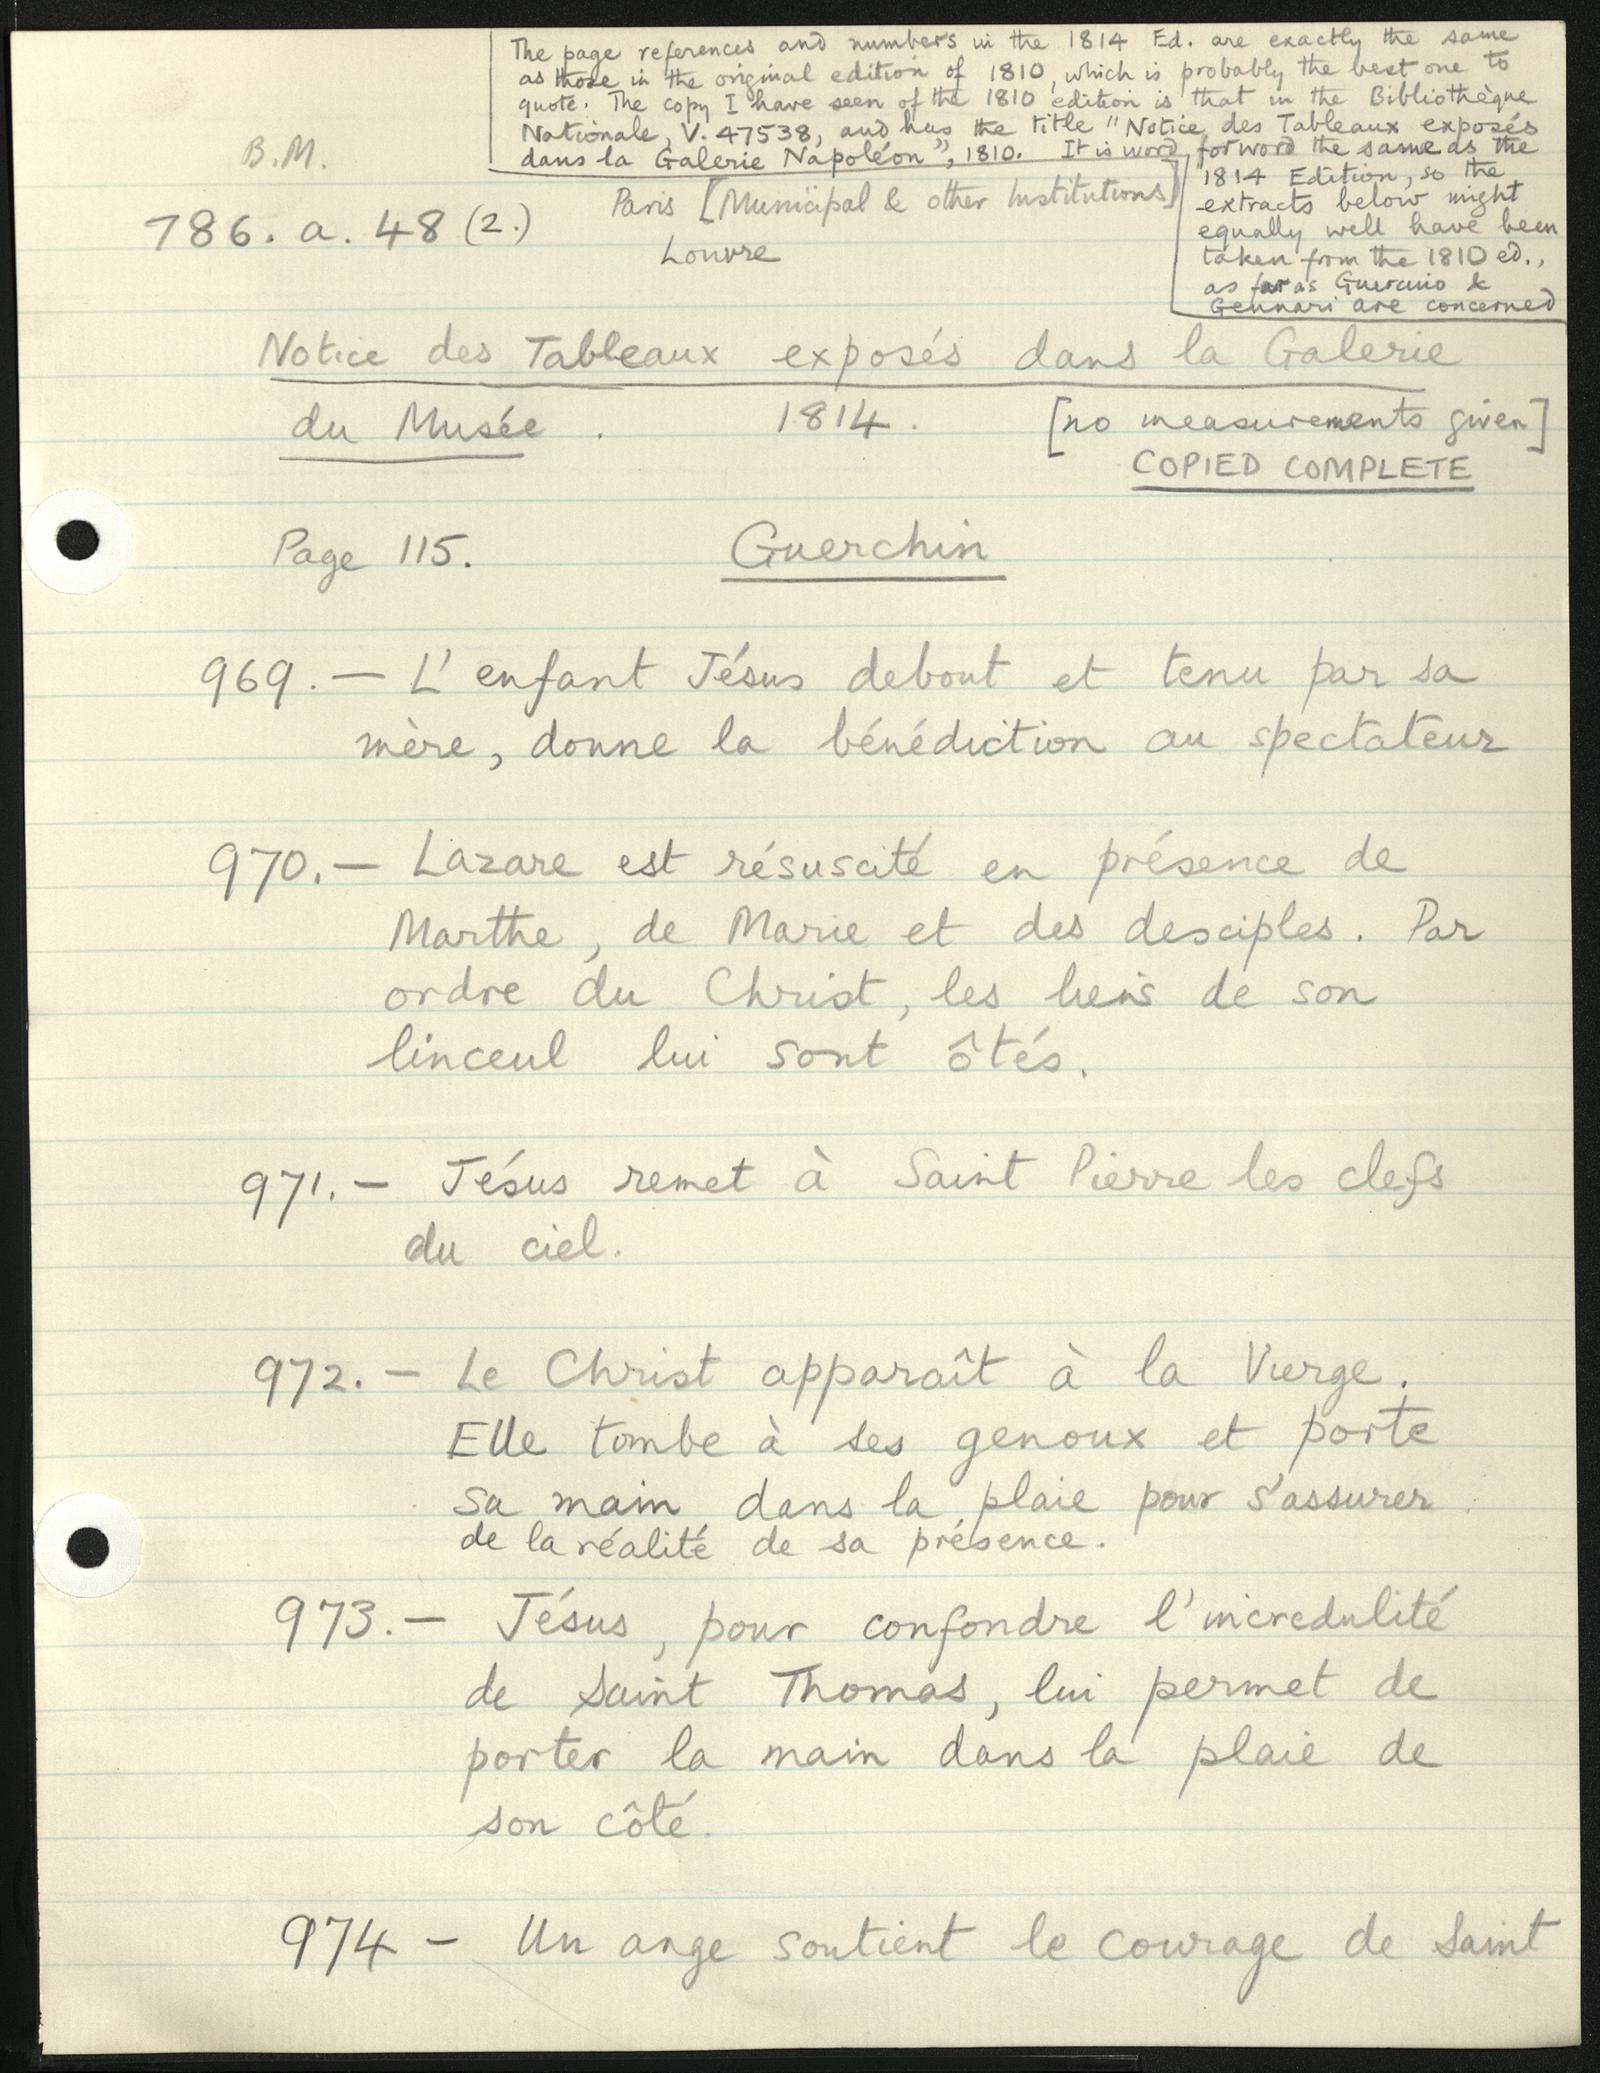 The page references and numbers in the 1814 Ed. are exactly the same
as those in the original edition of 1810, which is probably the best one to
quote. The copy I have seen of the 1810 edition is that in the Bibliothèque
Nationale, V. 47538, and has the title "Notice des Tableaux exposés
dans la Galerie Napoléon", 1810. It is word for word the same as the
1814 Edition, so the
extracts below might
equally well have been
taken from the 1810 ed.,
as far as Guercino &
Gennari are concerned
B.M.
786. a. 48 (2.)
Paris [Municipal & other Institutions]
Louvre
Notice des Tableaux exposés dans la Galerie
du Musée. 1814. [no measurements given]
COPIED COMPLETE
Page 115. Guerchin
969. — L'enfant Jésus debout et tenu par sa
mère, donne la bénédiction au spectateur
970. — Lazare est résuscité en présence de
Marthe, de Marie et des desciples. Par
ordre du Christ, les liens de son
linceul lui sont ôtés.
971. — Jésus remet à Saint Pierre les clefs
du ciel.
972. — Le Christ apparaît à la Vierge.
Elle tombe à ses genoux et porte
sa main dans la plaie pour s'assurer
de la réalité de sa présence.
973. — Jésus, pour confondre l'incredulité
de Saint Thomas, lui permet de
porter la main dans la plaie de
son côté.
974 — Un ange soutient le courage de Saint